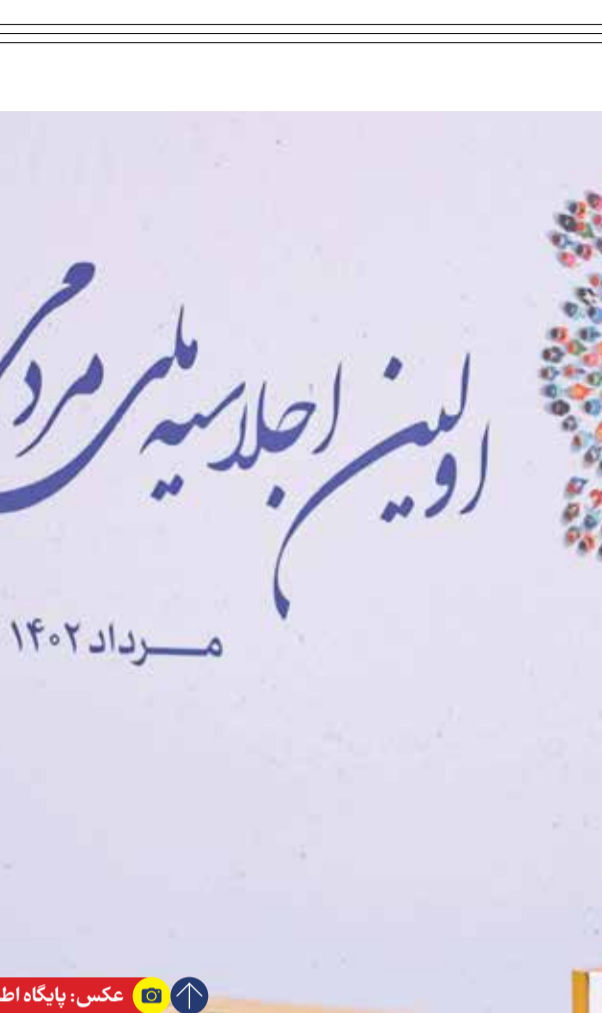 اولین اجلاسیه ملی مردمی
مرداد ۱۴۰۲
عکس: پایگاه